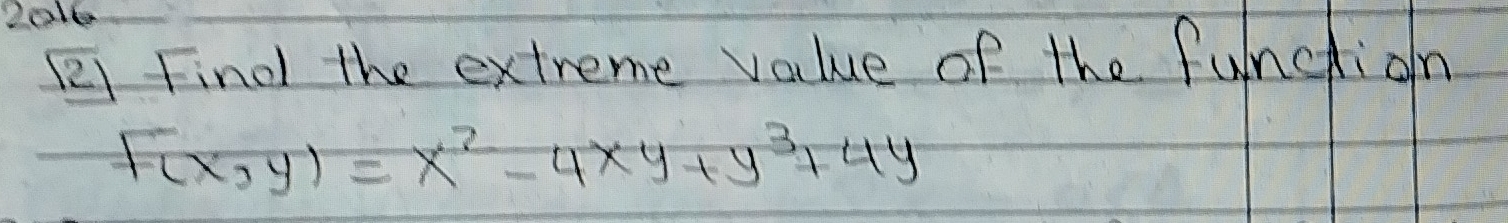 2016
12) Find the extreme value of the function
F(x,y) = x² - 4xy + y³ + 4y